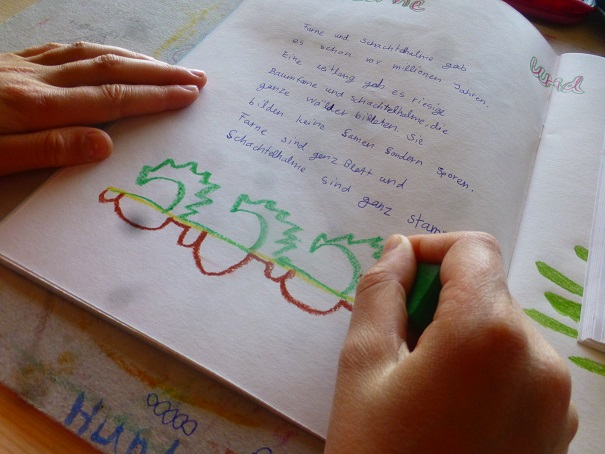 und
Farne und Schachtelhalme gab
es schon vor millionen Jahren.
Eine zeitlang gab es riesige
Baumfarne und schachtelhalme, die
ganze wälder bildeten. Sie
bilden keine Samen sondern Sporen.
Farne sind ganz Blatt und
Schachtelhalme sind ganz stam